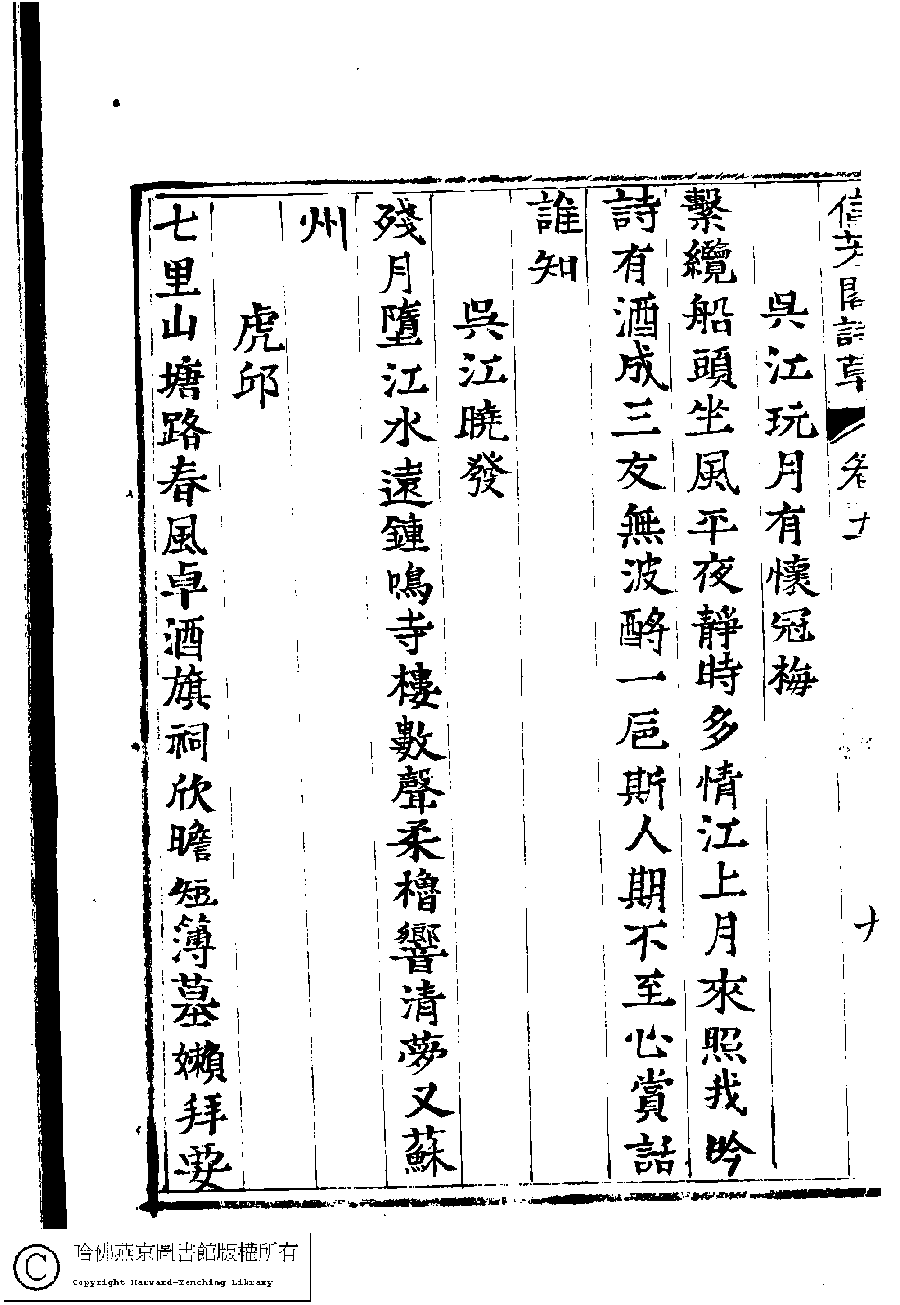 信芳閣詩草 卷
吳江玩月有懷冠梅
繫纜船頭坐風平夜靜時多情江上月來照我吟
詩有酒成三友無波酹一巵斯人期不至心賞話
誰知
吳江曉發
殘月墮江水遠鍾鳴寺樓數聲柔櫓響清夢又蘇
州
虎邱
七里山塘路春風卓酒旗祠欣瞻短簿墓嬾拜要
哈佛燕京圖書館版權所有
Copyright Harvard-Yenching Library